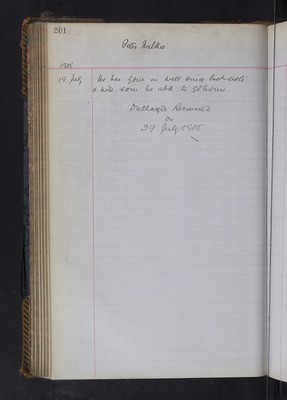 261
Peter
1905
19 July He has gone on well since last note
& will soon be able to go home.
Discharged Recovered
on
29 July 1905